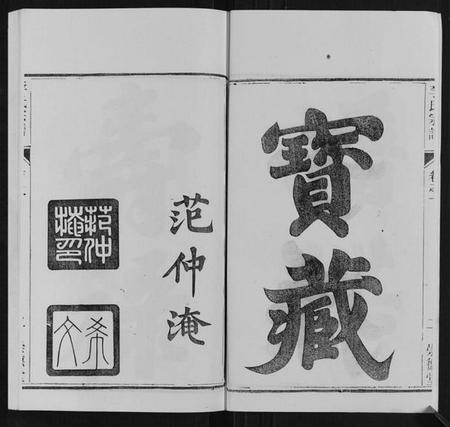 寶藏
范仲淹
范仲淹印
希文